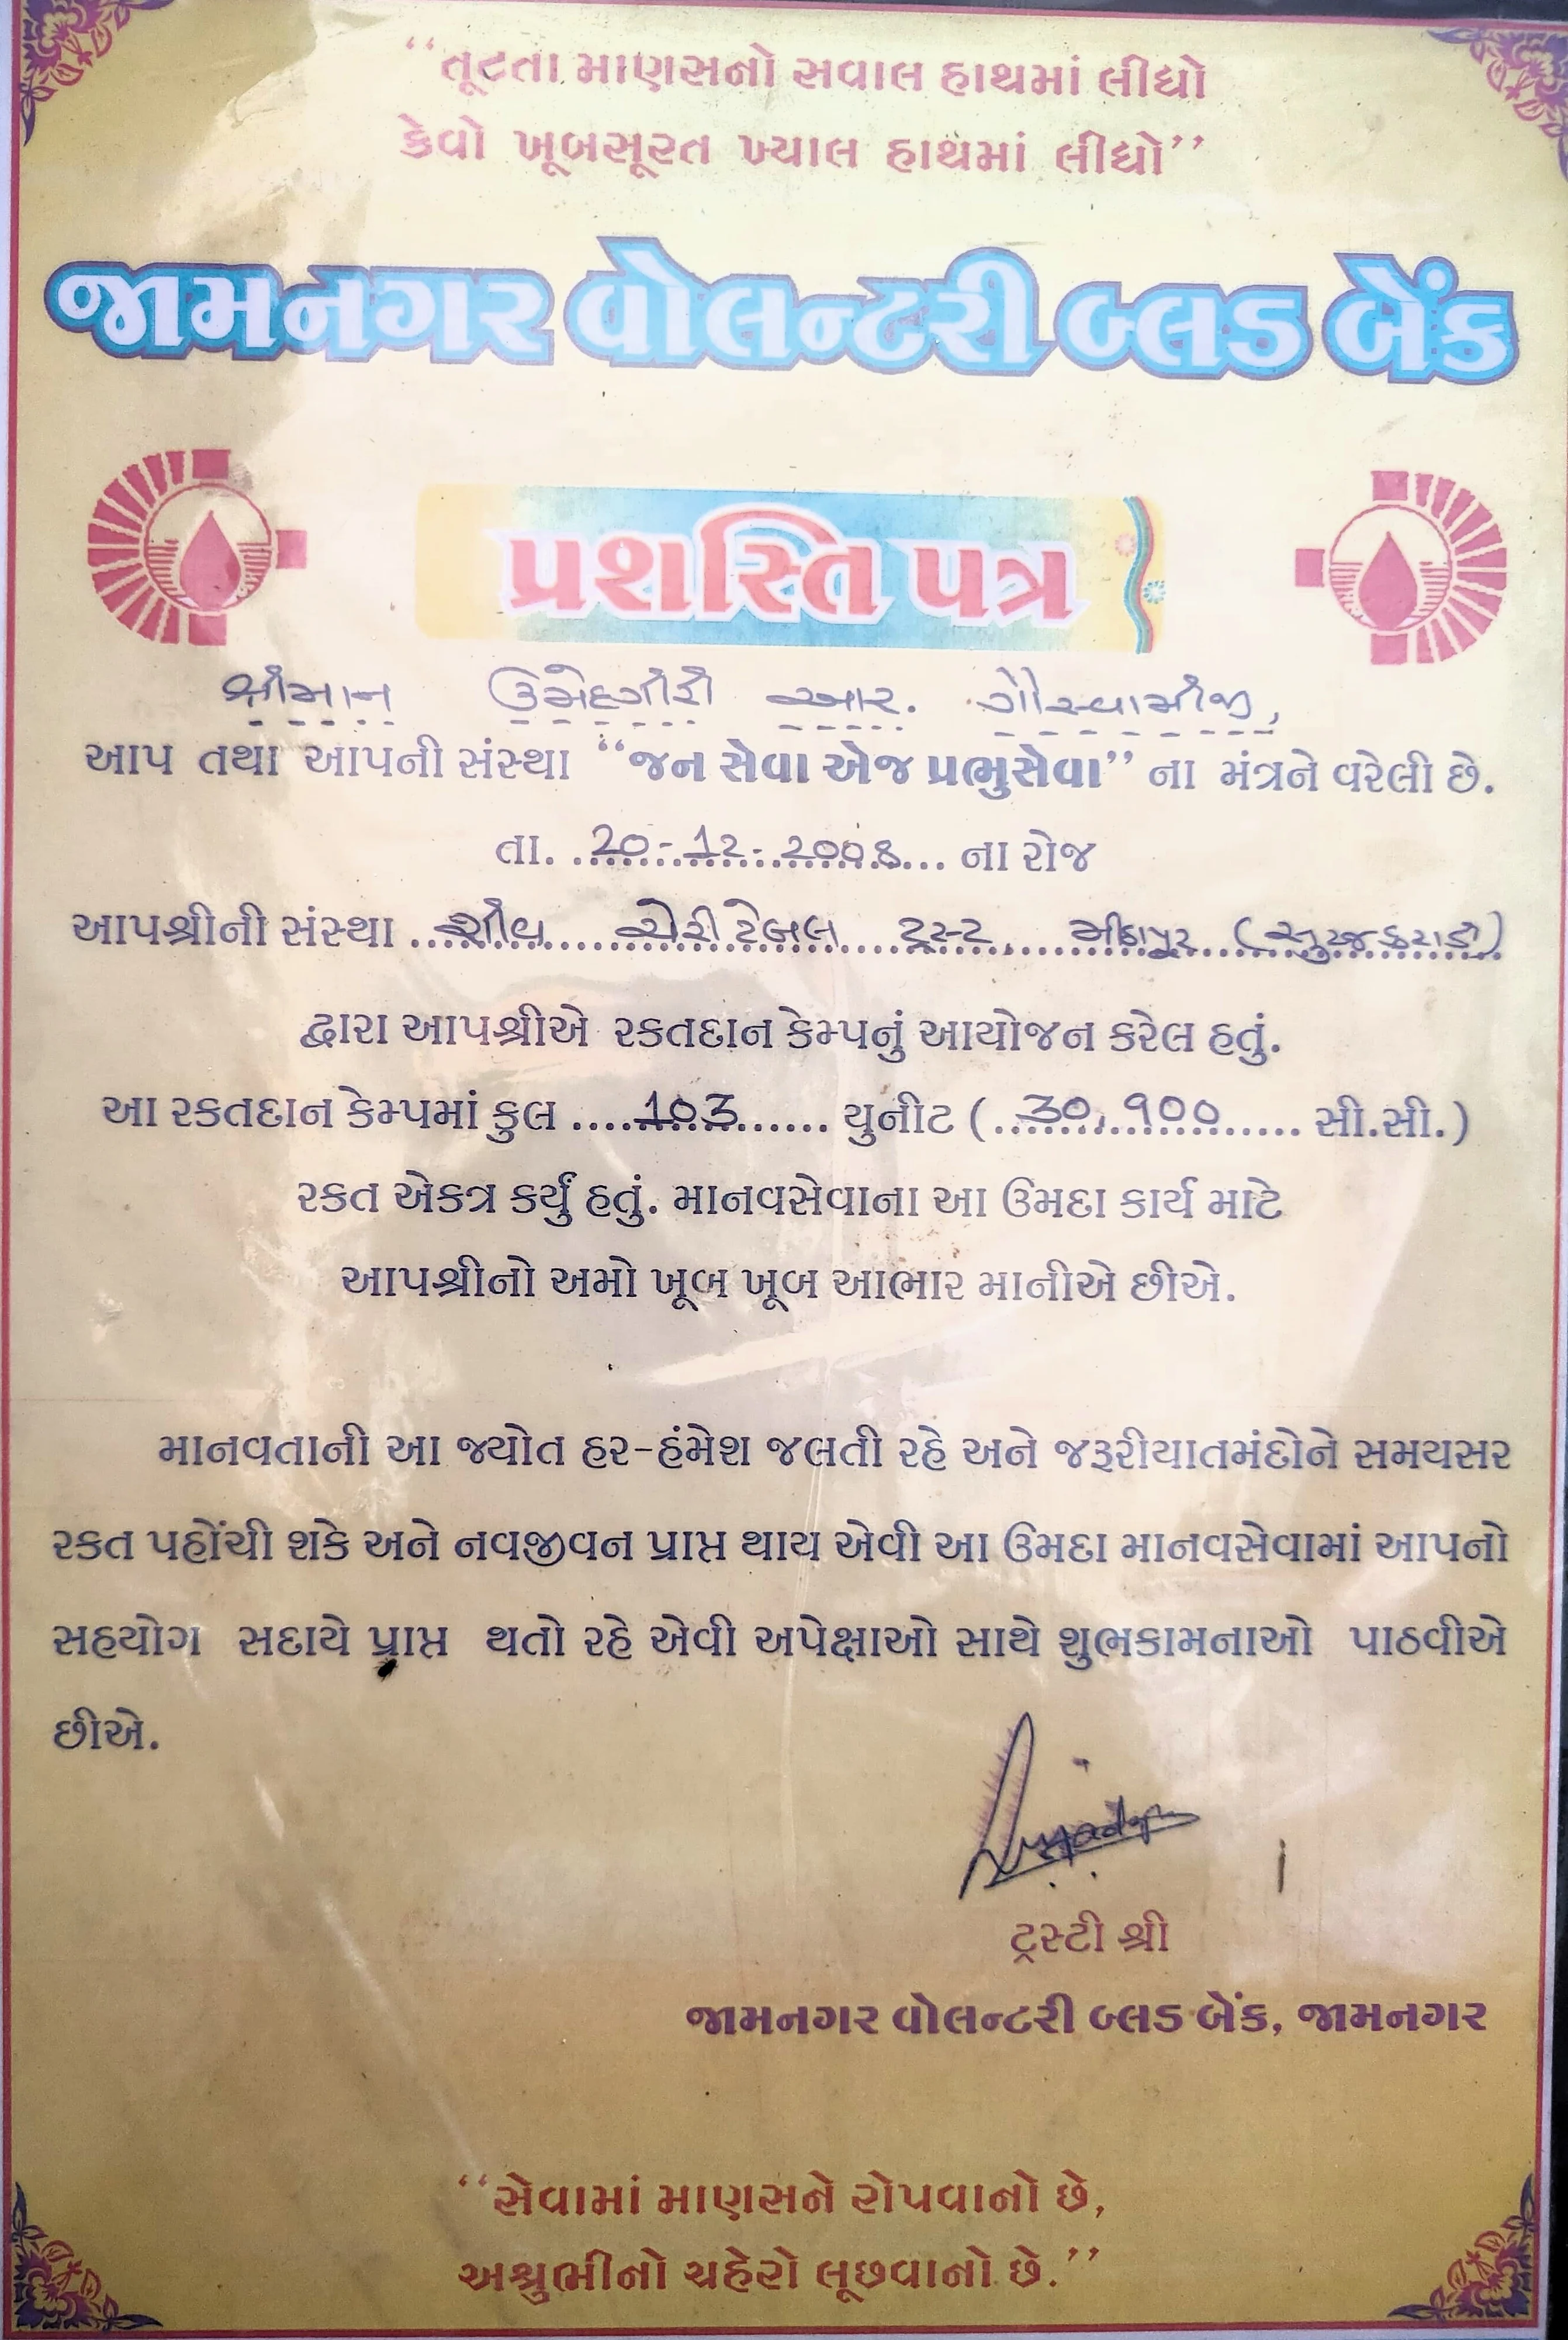 “તૂટતા માણસનો સવાલ હાથમાં લીધો
કેવો ખૂબસૂરત ખ્યાલ હાથમાં લીધો”
જામનગર વોલન્ટરી બ્લડ બેંક
પ્રશસ્તિ પત્ર
શ્રીમાન ઉમેદગીરી આર. ગૌસ્વામીજી,
આપ તથા આપની સંસ્થા “જન સેવા એજ પ્રભુસેવા” ના મંત્રને વરેલી છે.
તા. 20-12-2008 ના રોજ
આપશ્રીની સંસ્થા ચેરીટેબલ ટ્રસ્ટ, મીઠાપુર (સુરજકરાડી)
દ્વારા આપશ્રીએ રકતદાન કેમ્પનું આયોજન કરેલ હતું.
આ રકતદાન કેમ્પમાં કુલ ....103...... યુનીટ (..30,900.... સી.સી.)
રકત એકત્ર કર્યું હતું. માનવસેવાના આ ઉમદા કાર્ય માટે
આપશ્રીનો અમો ખૂબ ખૂબ આભાર માનીએ છીએ.
માનવતાની આ જ્યોત હર-હંમેશ જલતી રહે અને જરૂરીયાતમંદોને સમયસર
રકત પહોંચી શકે અને નવજીવન પ્રાપ્ત થાય એવી આ ઉમદા માનવસેવામાં આપનો
સહયોગ સદાયે પ્રાપ્ત થતો રહે એવી અપેક્ષાઓ સાથે શુભકામનાઓ પાઠવીએ
છીએ.
ટ્રસ્ટી શ્રી
જામનગર વોલન્ટરી બ્લડ બેંક, જામનગર
“સેવામાં માણસને રોપવાનો છે,
અશ્રુભીનો ચહેરો લૂછવાનો છે.”